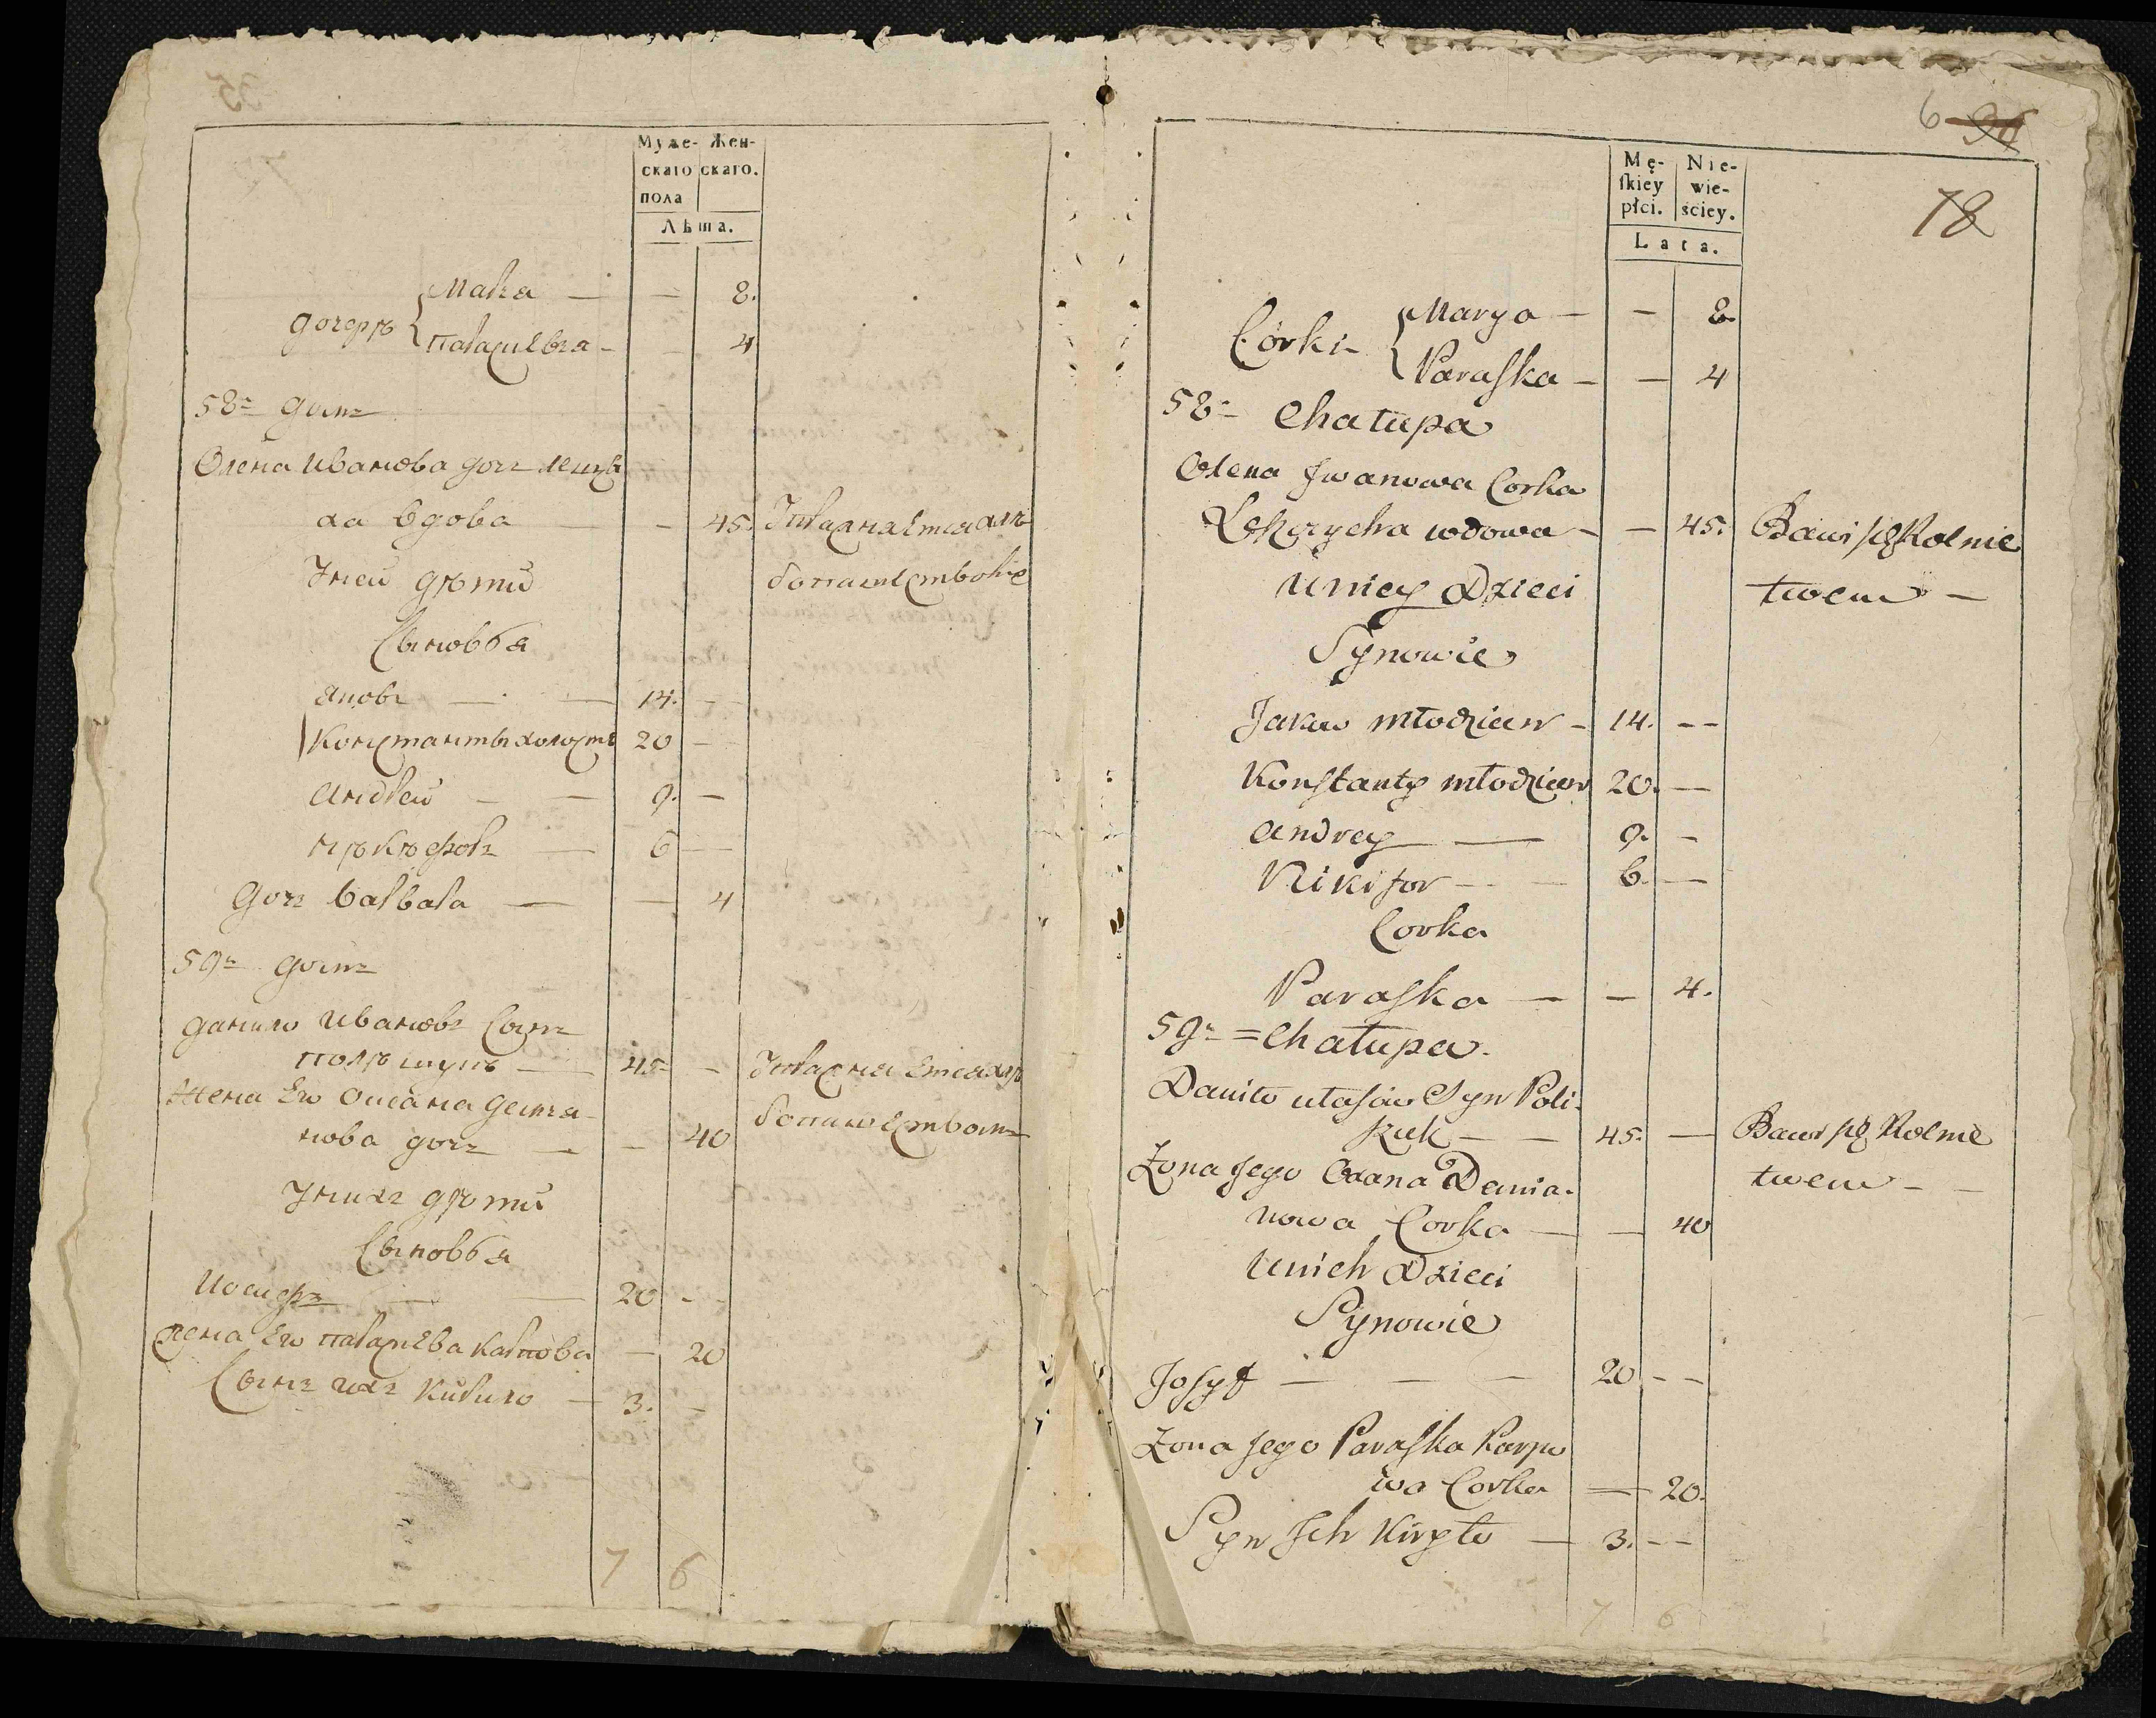 Муже- Жен-
скаго скаго.
пола
Лѣта.
дочерѣ
Маря — — 8.
параскевея — — 4
58ъ домъ
Олена Иванова дочъ
ха вдова — — 45.
Унеи дѣти
Сыновья
Яковъ — — 14. —
Константы холостъ 20 —
Андрей — — 9. —
Нѣкѣфоръ — 6 —
Дочъ варвара — — 4
59ъ домъ
Данило Ивановъ Сынъ
полѣщукъ — 45 —
Жена Его Оксана демея-
нова дочъ — — 40
Унихъ дѣти
Сыновья
Иосифъ — — 20 - -
жена Его параскева карпова — 20
Сынъ ихъ Кирило — 3. —
7 6
6
78
Mę- Nie-
skiey wie-
płci. sciey.
Lata.
Córki
Marya — — 8.
Paraska — — 4
58- Chałupa
Olena Jwanowa Corka
wdowa — — 45. Bawi się Rolnic
Uniey Dzieci twem —
Synowie
Jakow młodzian — 14. — —
Konstanty młodzian 20. —
Andrey — 9. —
Nikifor — — 6. —
Corka
Paraska — — 4.
59- = Chałupa.
Daniło Syn Poli-
szuk — — 45. — Bawi się Rolnic
Zona Jego Oxana Demia- twem — —
nowa Corka — — 40
Unich Dzieci
Synowie
Josyf — — — 20 - -
Zona Jego Paraska Karpo
wa Corka — 20.
Syn Jch Kiryło — 3. - -
7 6